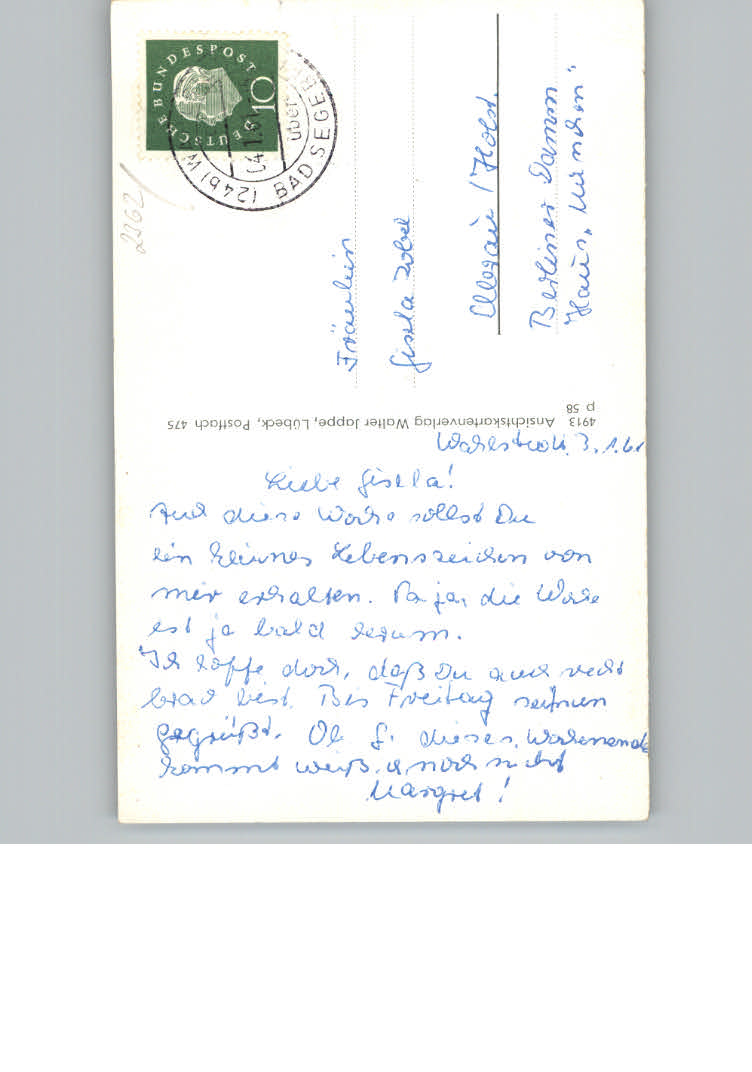 DEUTSCHE BUNDESPOST
10
(24b) W
4.1.61
über
BAD SEGEB
2362
Fräulein
Gisela Zobel
/Holst.
Berliner Damm
Haus, München"
4913 Ansichtskartenverlag Walter Jappe, Lübeck, Postfach 475
p 58
Wahlstedt, 3.1.61
Liebe Gisela!
Auch diese Woche sollst Du
ein kleines Lebenszeichen von
mir erhalten. Na ja, die Woche
ist ja bald herum.
Ich hoffe doch, daß Du auch recht
brav bist. Bis Freitag
gegrüßt. Ob G. dieses Wochenende
kommt weiß noch nicht
Margret!